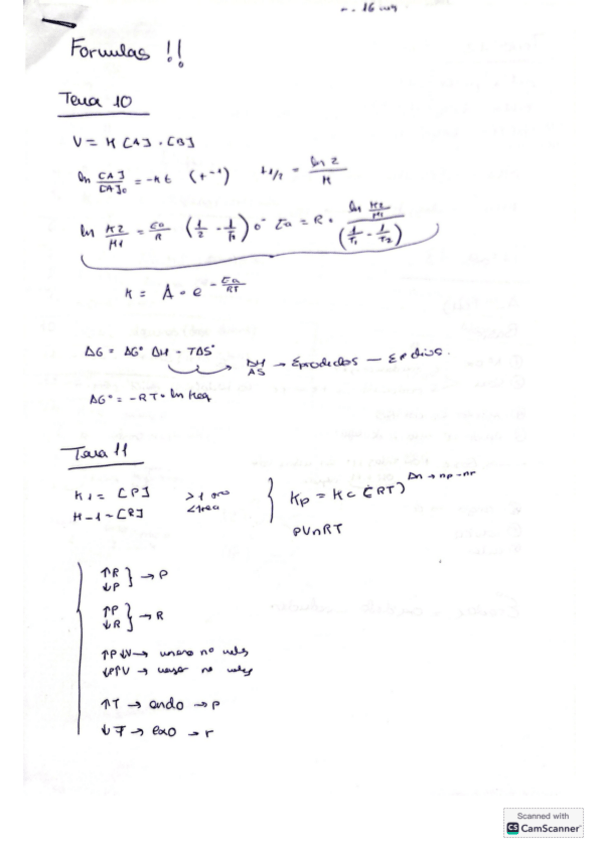 16
Formulas !!
Tema 10
V = K [A] · [B]
ln [A]/[A]o = -kt (t⁻¹) t1/2 = ln 2/K
ln K2/K1 = Ea/R (1/2 - 1/T1) o Ea = R · ln K2/K1 / (1/T1 - 1/T2)
K = A · e^-Ea/RT
ΔG = ΔG° ΔH - TΔS°
ΔH ΔS → Eproductos —
ΔG° = -RT · ln Keq
Tema 11
K1 = [P] >1
K-1 = [R] <1
Kp = Kc (RT)^Δn → np-nr
PVnRT
↑R ↓P } → P
↑P ↓R } → R
↑P↓V → no
↓P↑V → no
↑T → endo → P
↓T → exo → r
Scanned with
CS CamScanner